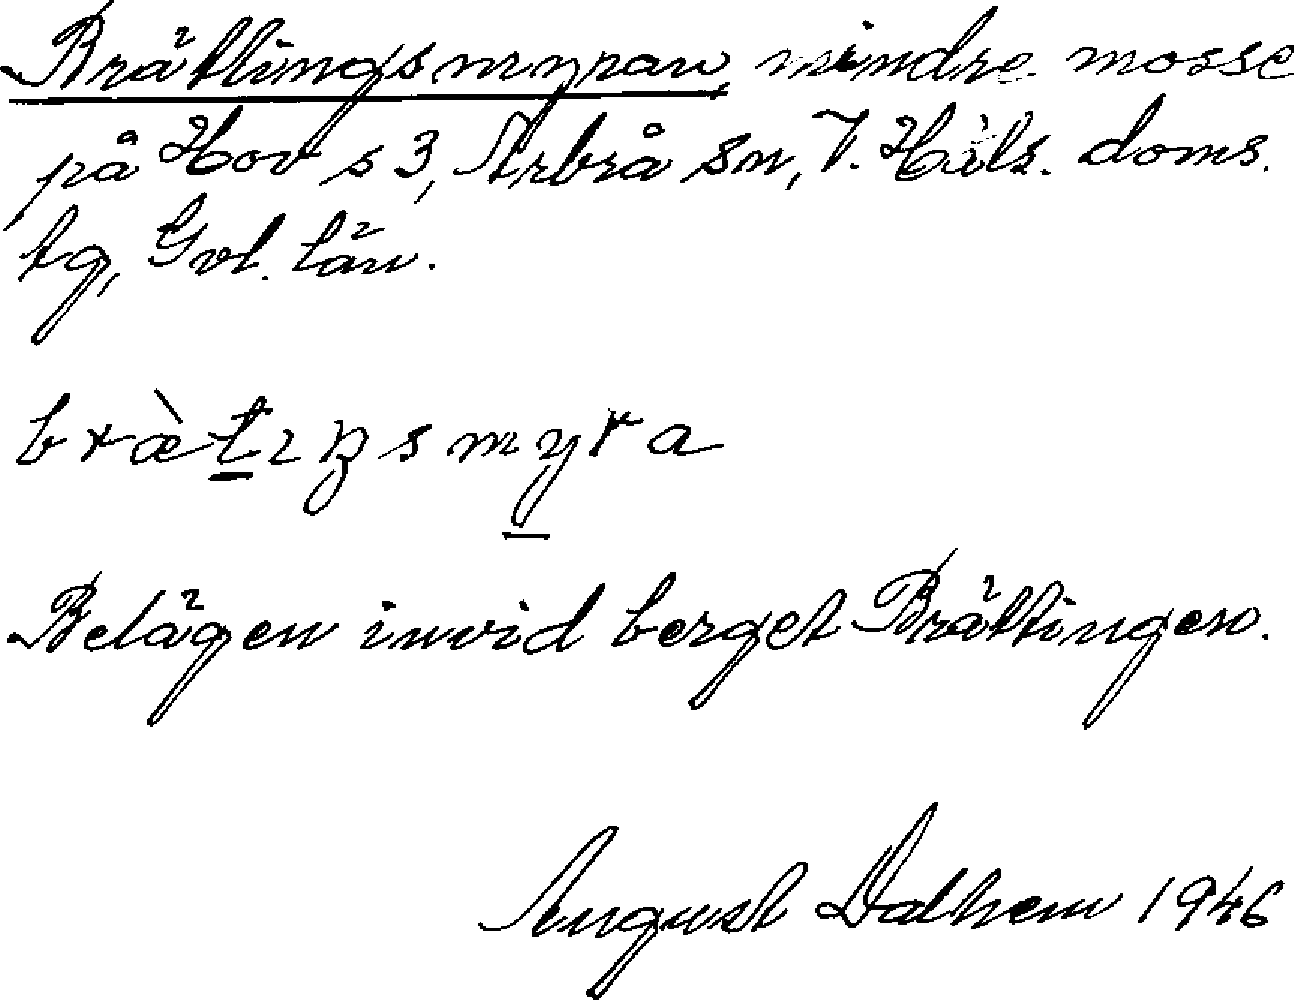 Brättingsmyran mindre mosse
på Hov s 3, Arbrå sn, V. Häls. doms.
tg, Gvl. län.
bræ̀tıŋsmyra
Belägen invid berget Brättingen.
August Dalhem 1946